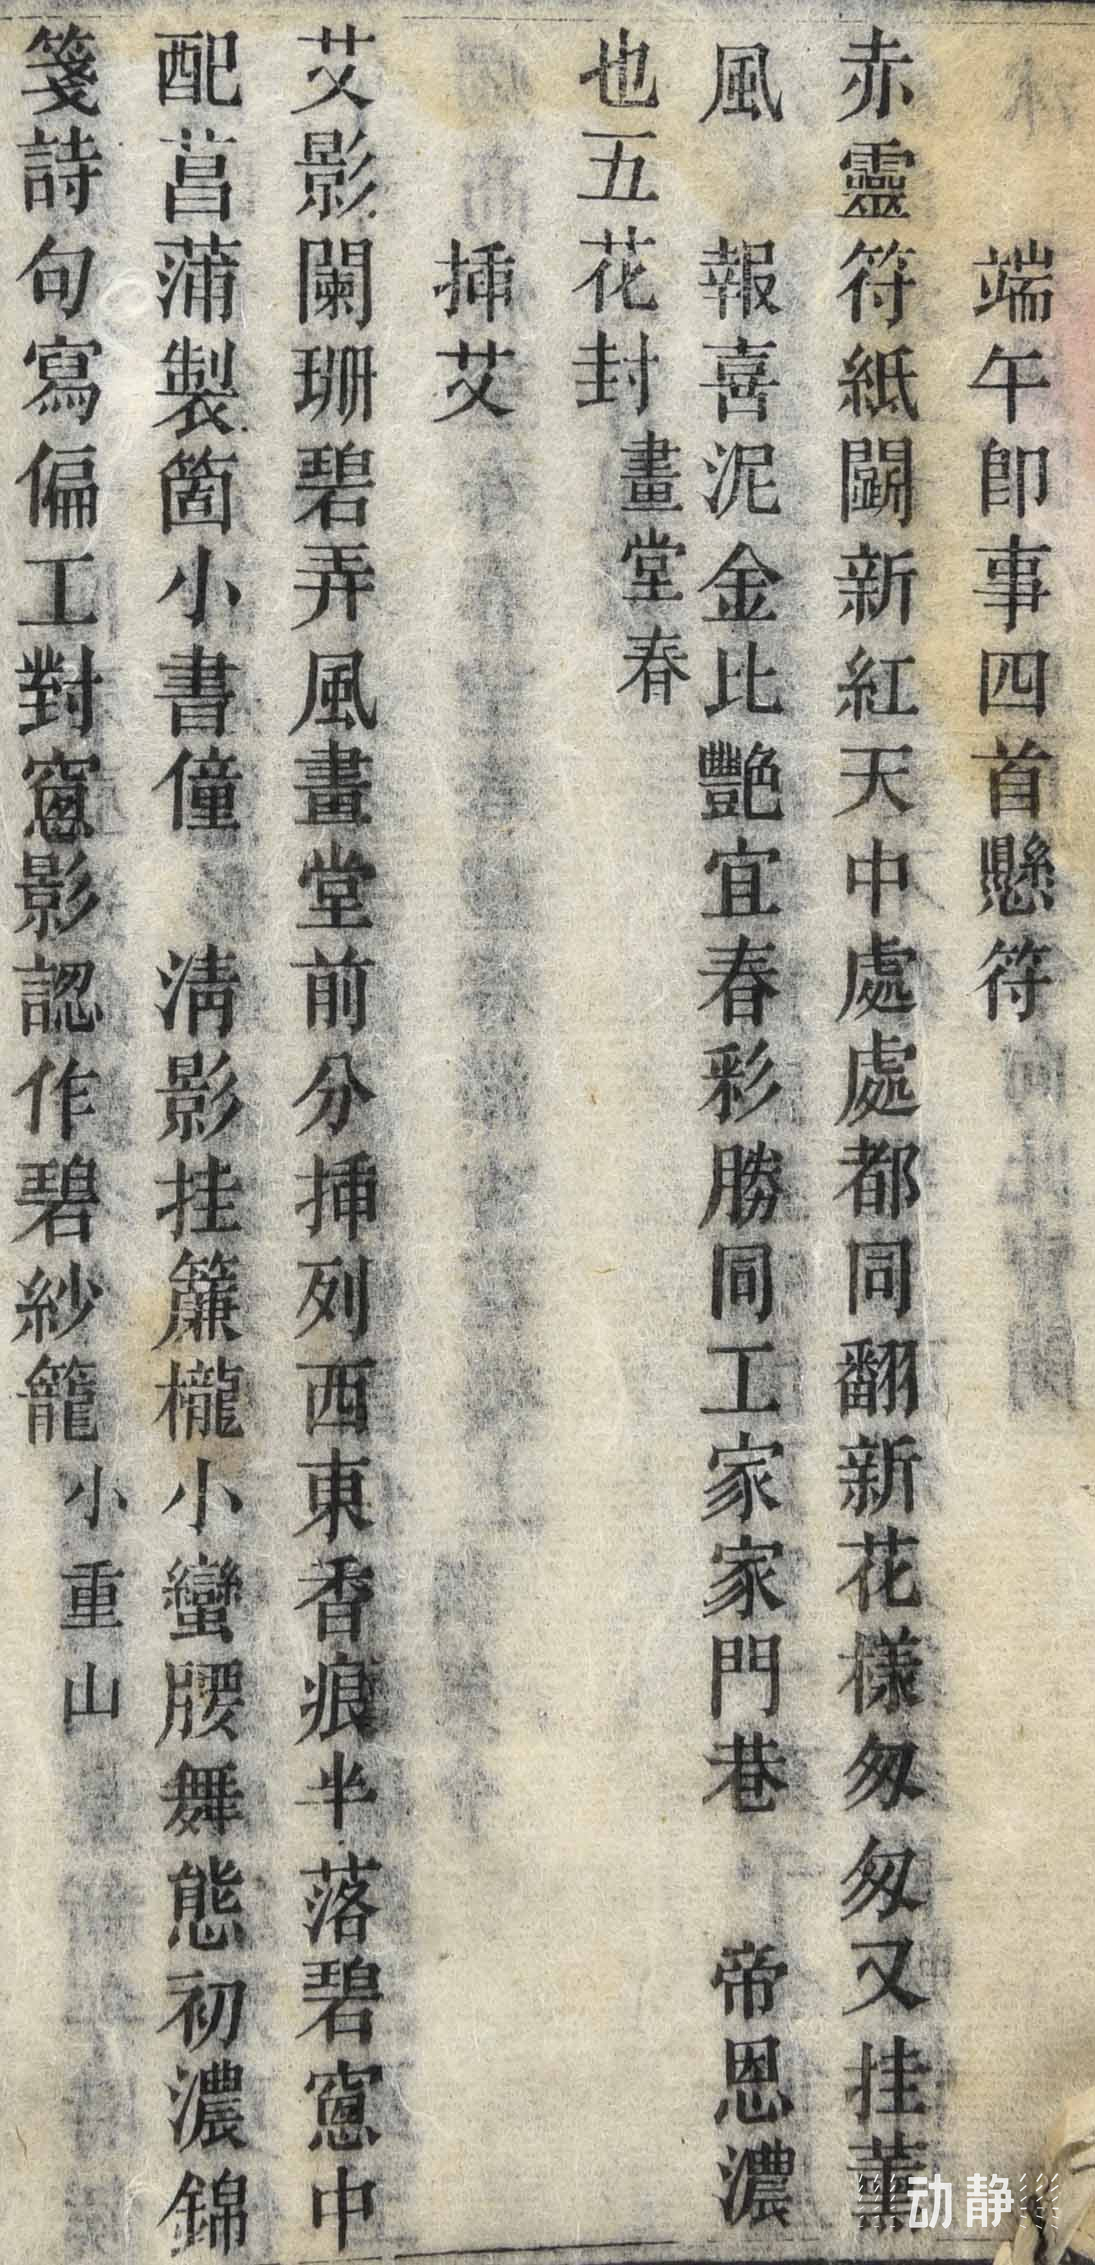 端午卽事四首懸符
赤靈符紙鬭新紅天中處處都同翻新花樣匆匆又挂薰
風　報喜泥金比艷宜春彩勝同工家家門巷　帝恩濃
也五花封畫堂春
揷艾
艾影闌珊碧弄風畫堂前分揷列西東香痕半落碧窻中
配菖蒲製箇小書僮　淸影挂簾櫳小蠻腰舞態初濃錦
箋詩句寫偏工對窻影認作碧紗籠小重山
动静